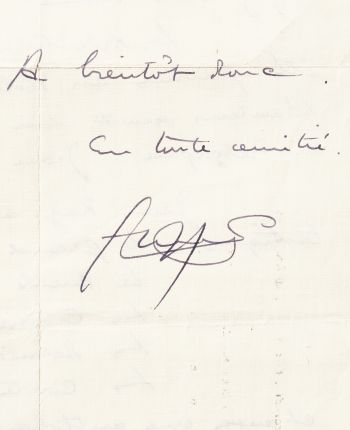 A bientôt donc.
En toute amitié.